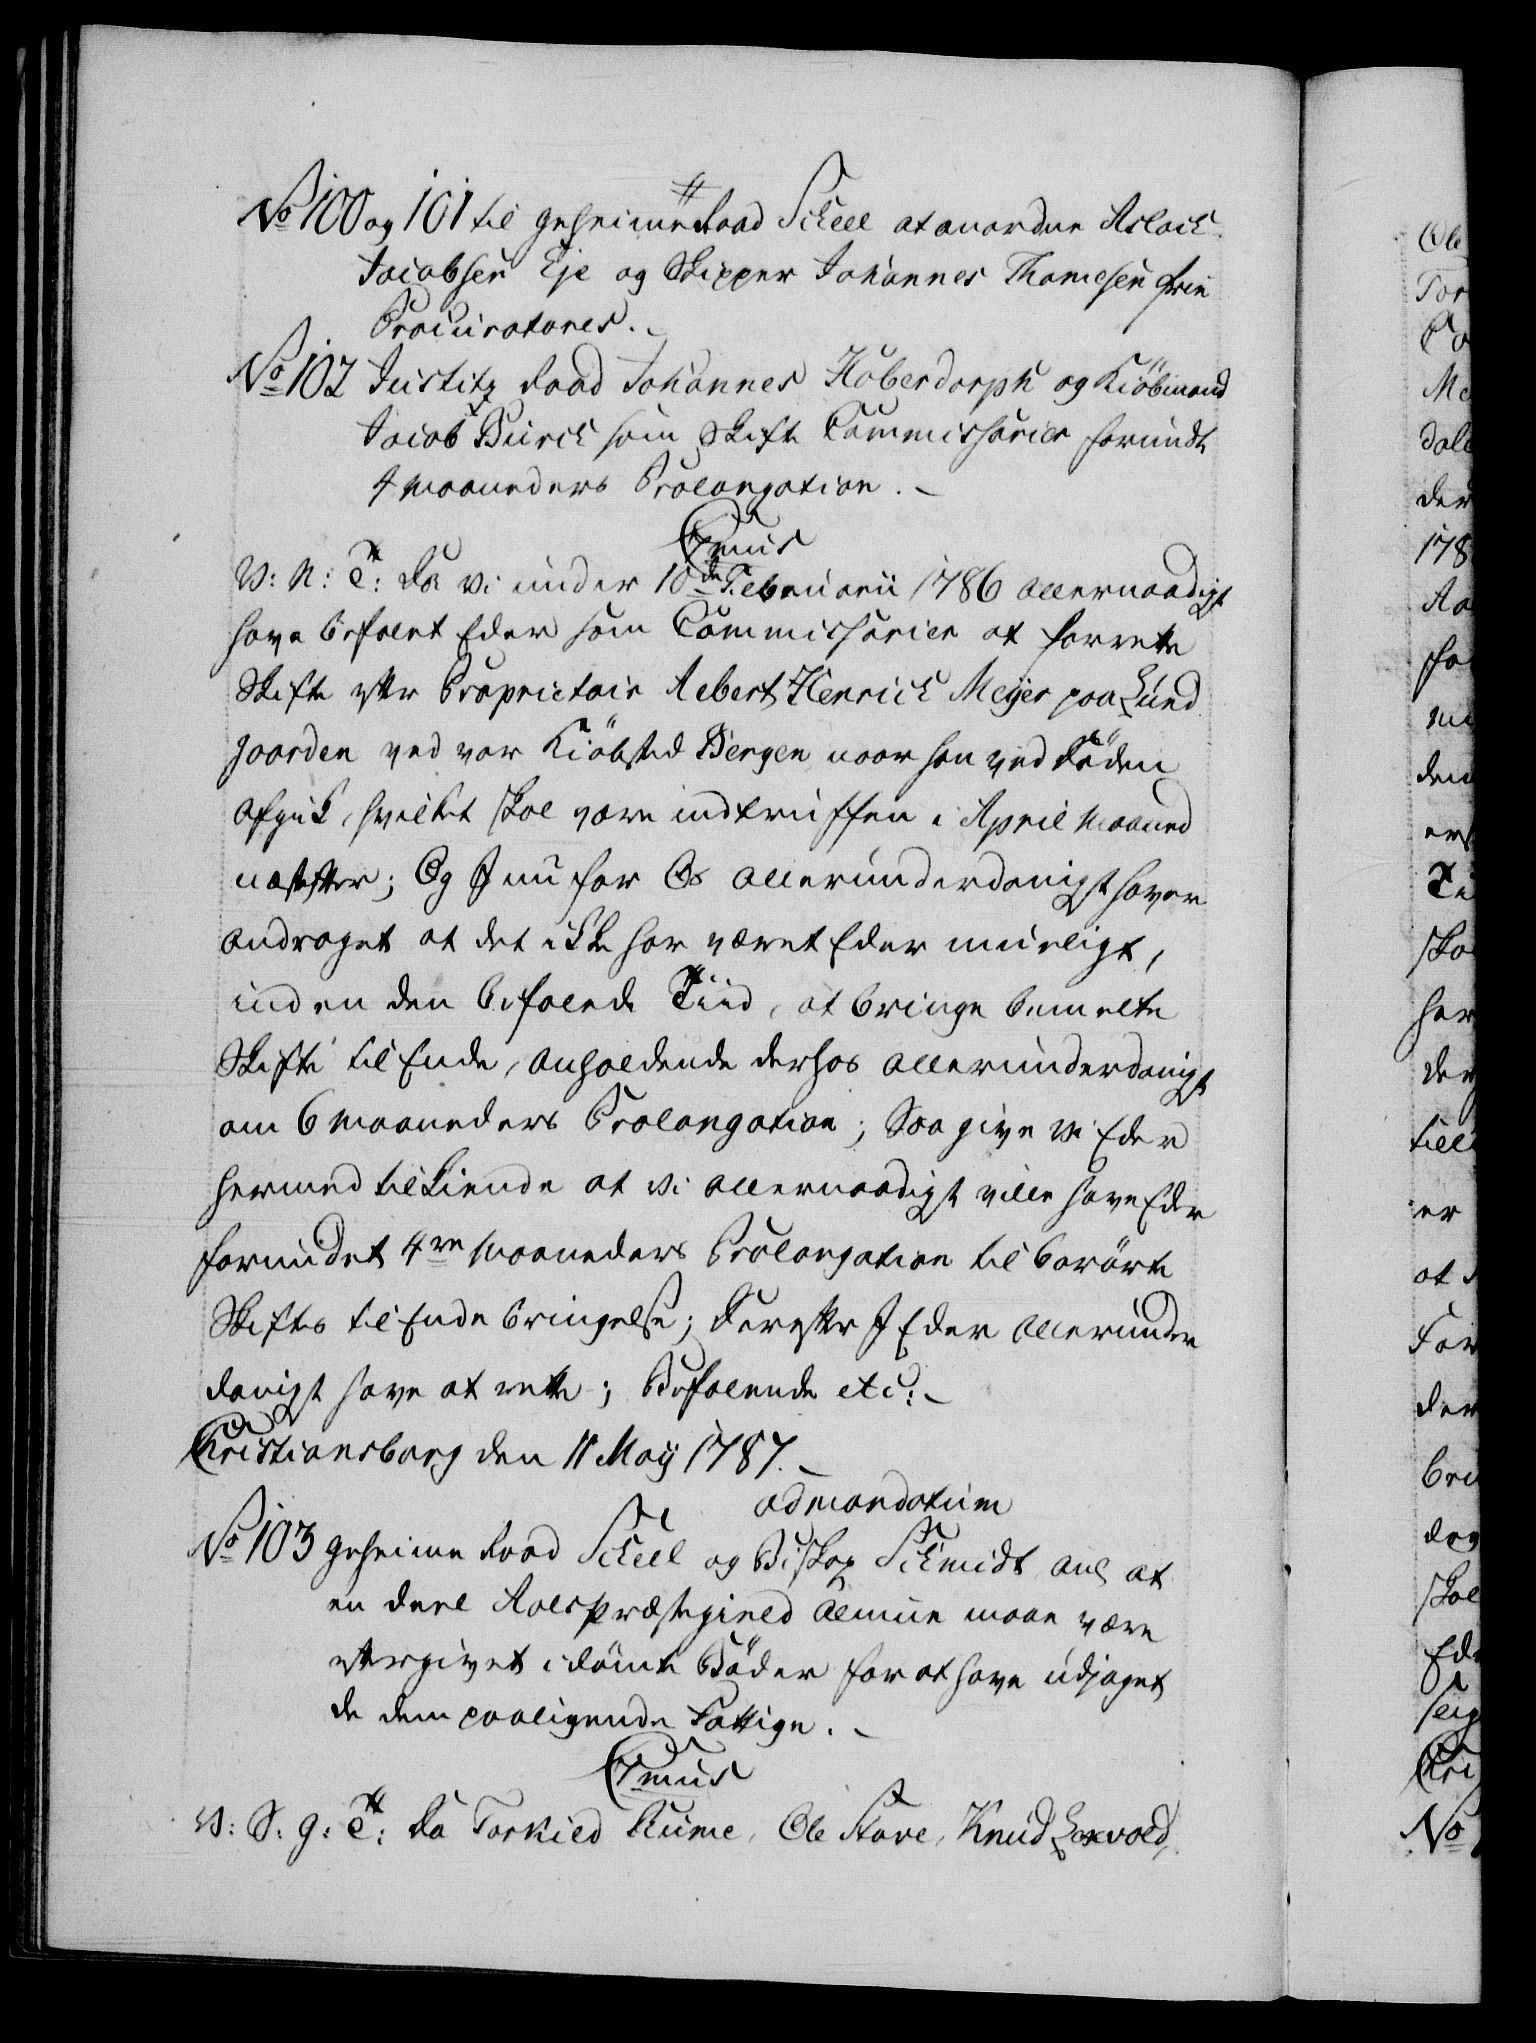 No 100 og 101 til geheime Raad Scheel at anordne Aslach
Jacobsen Eje og Skipper Johannes Thomesen frie
Procuratores.
No 102 Justitz Raad Johannes Haberdorph og Kiöbmand
Jacob Burch som Skifte Commissarier forundt
4 Maaneders Prolongation.
C7mus
V: N: T: Da Vi under 10de Februarii 1786 allernaadigst
have befalet Eder som Commissarier at forrette
Skifte efter Proprietair Aebert Henrich Meyer paa Lund
gaarden ved vor Kiöbsted Bergen naar han ved Döden
afgik, hvilket skal være indtruffen i April Maaned
næstefter; Og I nu for Os allerunderdanigst haver
andraget at det ikke har været Eder mueligt,
inden den befalede Tiid, at bringe bemelte
Skifte til Ende, anholdende derhos allerunderdanigst
om 6 Maaneders Prolongation; Saa give Vi Eder
hermed tilkiende at Vi allernaadigst ville have Eder
forundet 4re Maaneders Prolongation til berörte
Skiftes til Ende bringelse; Derefter I Eder allerunder
danigst have at rette; Befalende etc:
Christiansborg den 11 Maij 1787.
ad mandatum
No 103 geheime Raad Scheel og Biskop Schmidt anl at
en deel Aals Præstegield Almue maae være
eftergivet idömte Böder for at have udjaget
de dem paaliggende Fattige.
C7mus
V: S: G: T: Da Torkild Kume, Ole Stave, Knud Loevold,